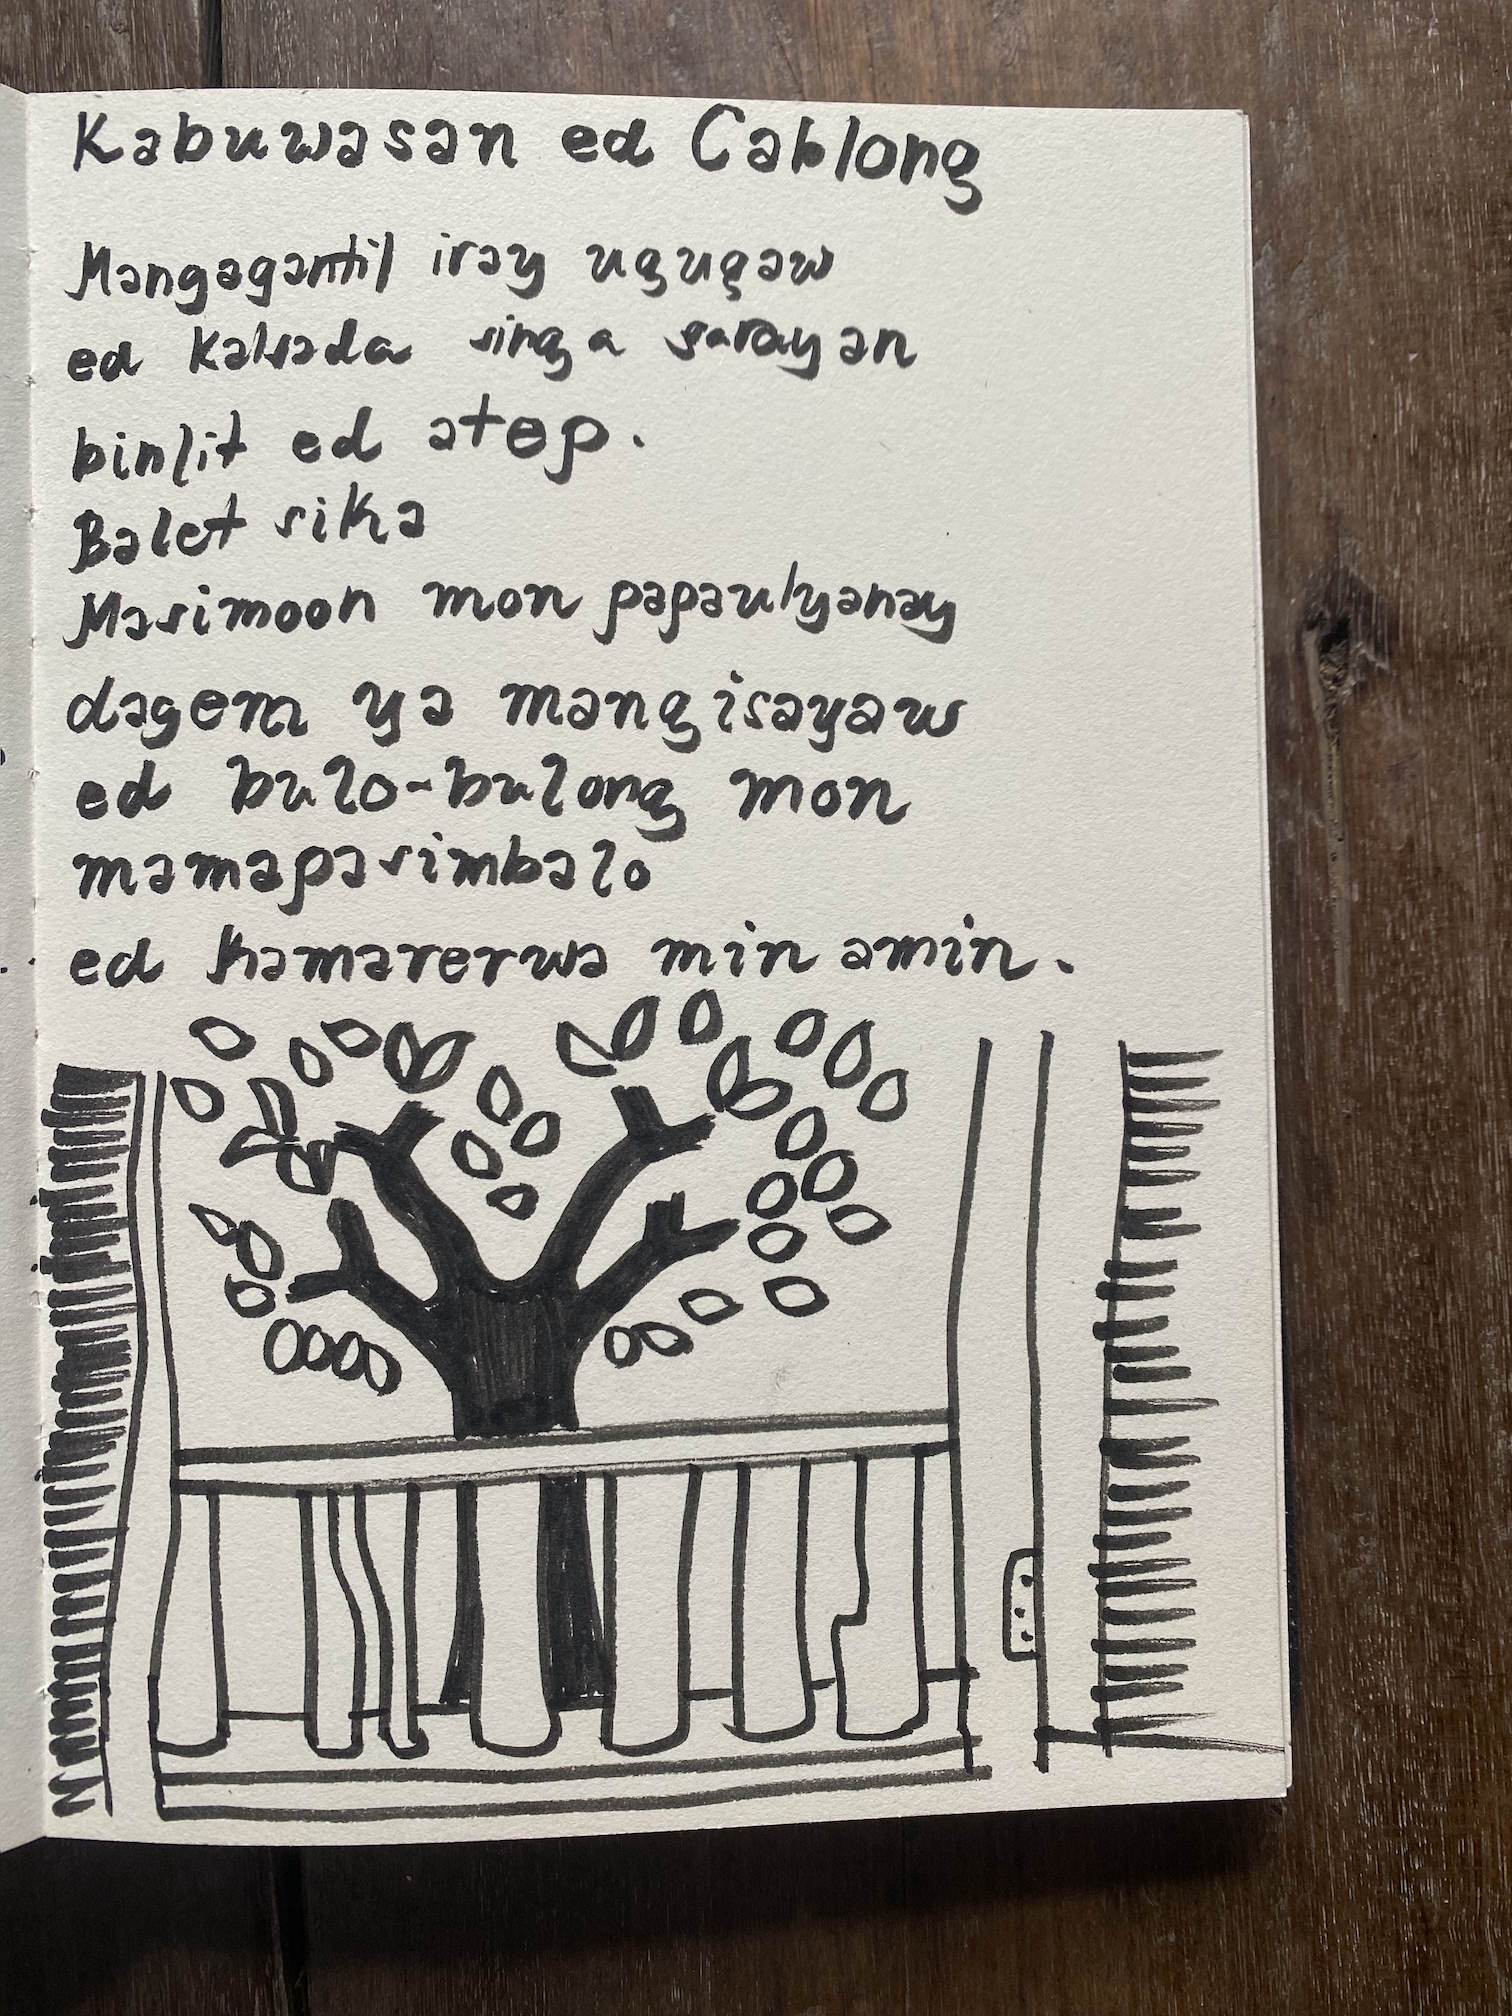 Kabuwasan ed Cablong
Mangagantil iray ugugaw
ed kalsada singa sarayan
binlit ed atep.
Balet sika
Masimoon mon papaulyanay
dagem ya mangisayaw
ed bulo-bulong mon
mamapasimbalo
ed kamarerwa min amin.